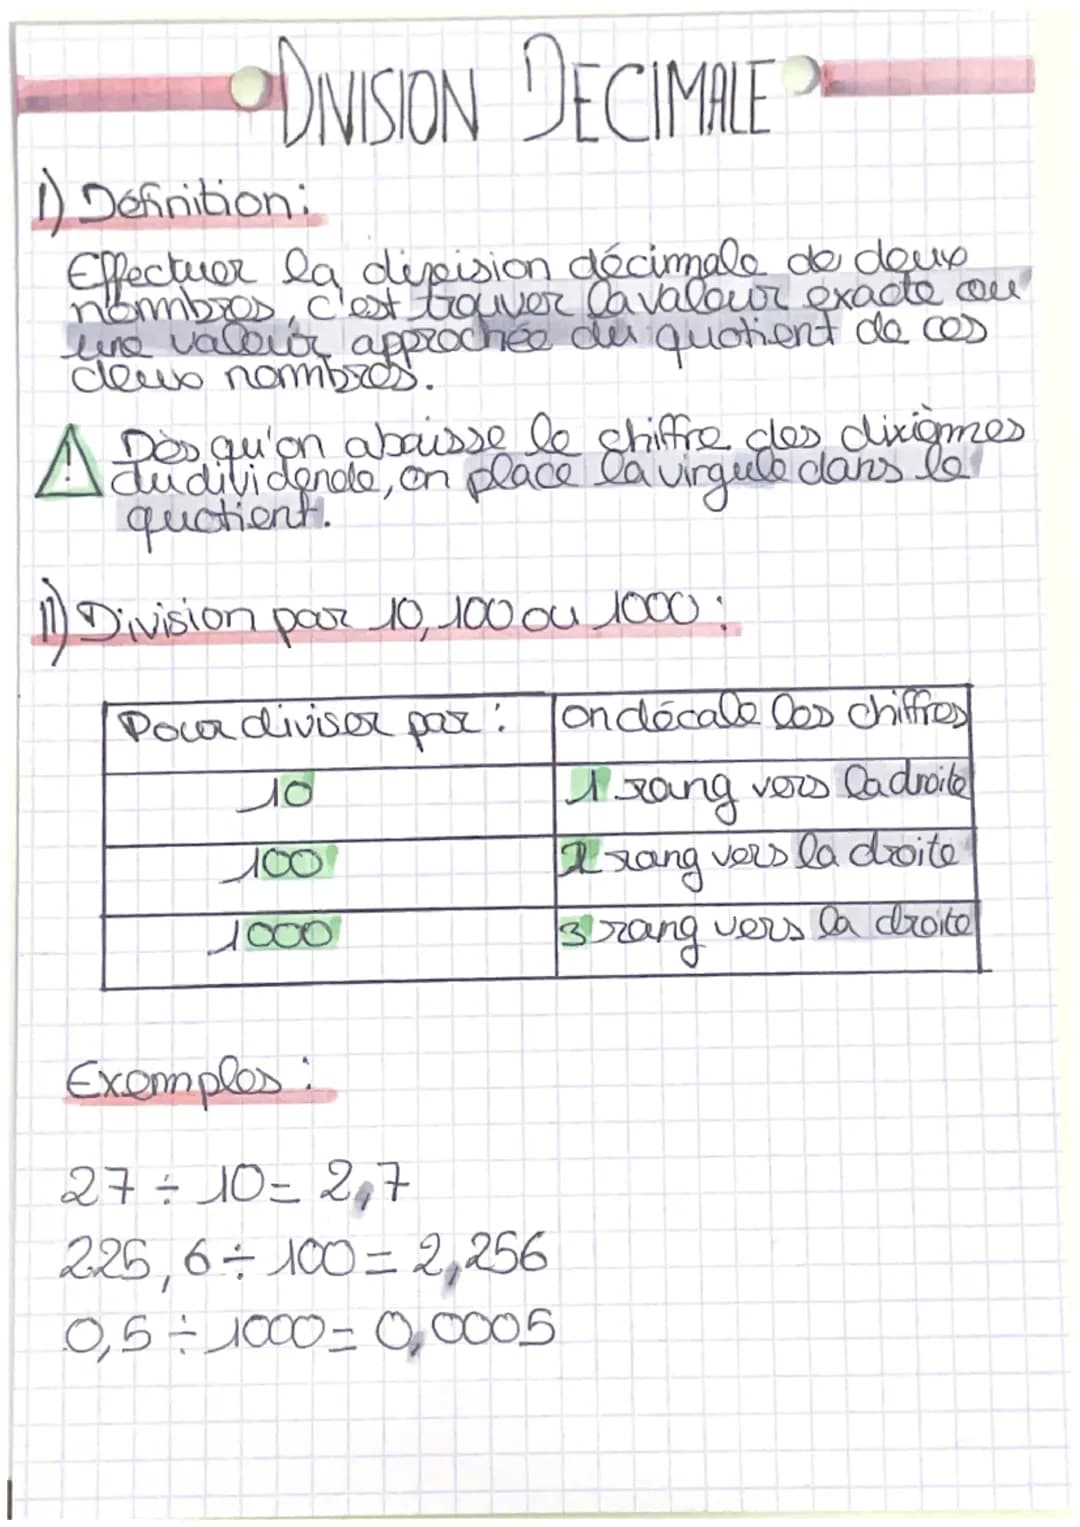 DIVISION DECIMALE
I) Définition:
Effectuer la division décimale de deux
nombres, c'est trouver la valeur exacte ou
une valeur approchée du quotient de ces
deux nombres.
! Dès qu'on abaisse le chiffre des dixièmes
du dividende, on place la virgule dans le
quotient.
II) Division par 10, 100 ou 1000 :
Pour diviser par : on décale les chiffres
10 1 rang vers la droite
100 2 rang vers la droite
1000 3 rang vers la droite
Exemples :
27 ÷ 10 = 2,7
225,6 ÷ 100 = 2,256
0,5 ÷ 1000 = 0,0005